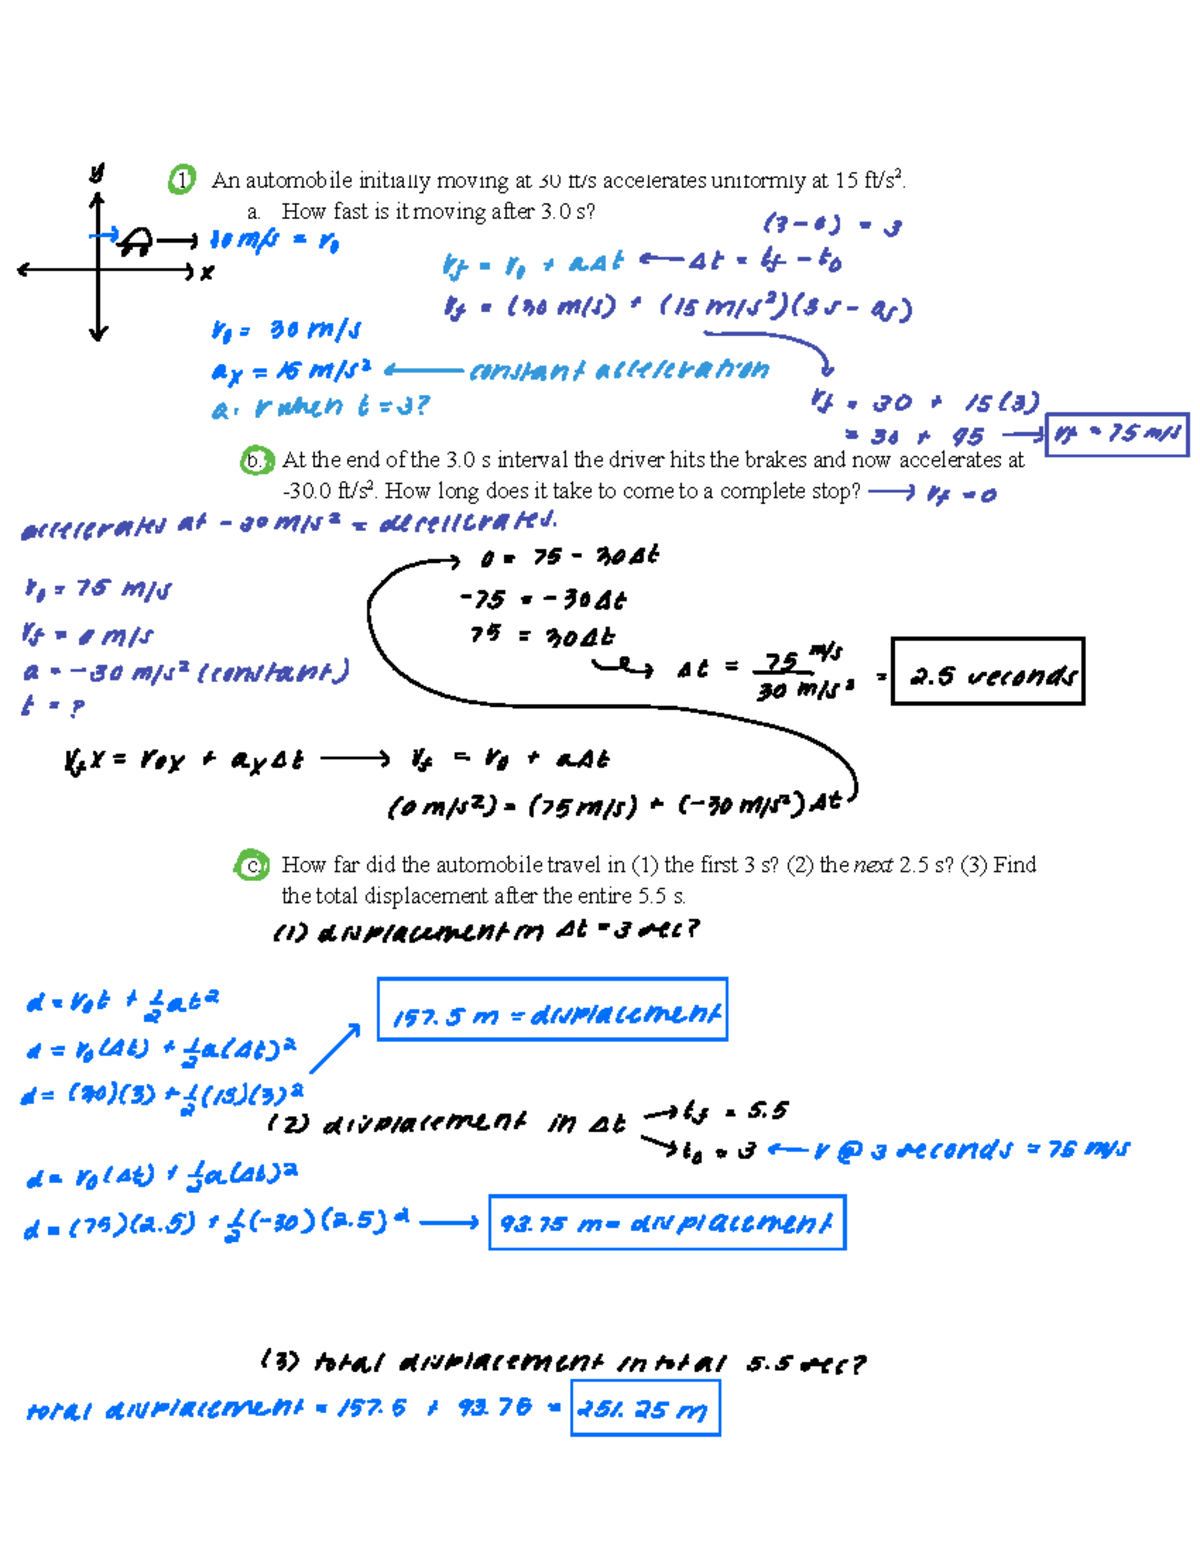 y
1 An automobile initially moving at 30 ft/s accelerates uniformly at 15 ft/s².
a. How fast is it moving after 3.0 s?
(3-0) = 3
30 m/s = v₀
x
vf = v₀ + aΔt ← Δt = tf - t₀
vf = (30 m/s) + (15 m/s²)(3s - 0s)
v₀ = 30 m/s
aₓ = 15 m/s² ← constant acceleration
a. v when t = 3?
vf = 30 + 15(3)
= 30 + 45 → vf = 75 m/s
b. At the end of the 3.0 s interval the driver hits the brakes and now accelerates at
-30.0 ft/s². How long does it take to come to a complete stop? → vf = 0
accelerates at -30 m/s² = decellerates.
0 = 75 - 30Δt
v₀ = 75 m/s
-75 = -30Δt
vf = 0 m/s
75 = 30Δt
a = -30 m/s² (constant)
Δt = 75 m/s / 30 m/s² = 2.5 seconds
t = ?
vfx = v₀x + axΔt → vf = v₀ + aΔt
(0 m/s²) = (75 m/s) + (-30 m/s²)Δt
c. How far did the automobile travel in (1) the first 3 s? (2) the next 2.5 s? (3) Find
the total displacement after the entire 5.5 s.
(1) displacement in Δt = 3 sec?
d = v₀t + ½at²
157.5 m = displacement
d = v₀(Δt) + ½a(Δt)²
d = (30)(3) + ½(15)(3)²
(2) displacement in Δt → tf = 5.5
→ t₀ = 3 ← v @ 3 seconds = 75 m/s
d = v₀(Δt) + ½a(Δt)²
d = (75)(2.5) + ½(-30)(2.5)² → 93.75 m = displacement
(3) total displacement in total 5.5 sec?
total displacement = 157.5 + 93.75 = 251.25 m